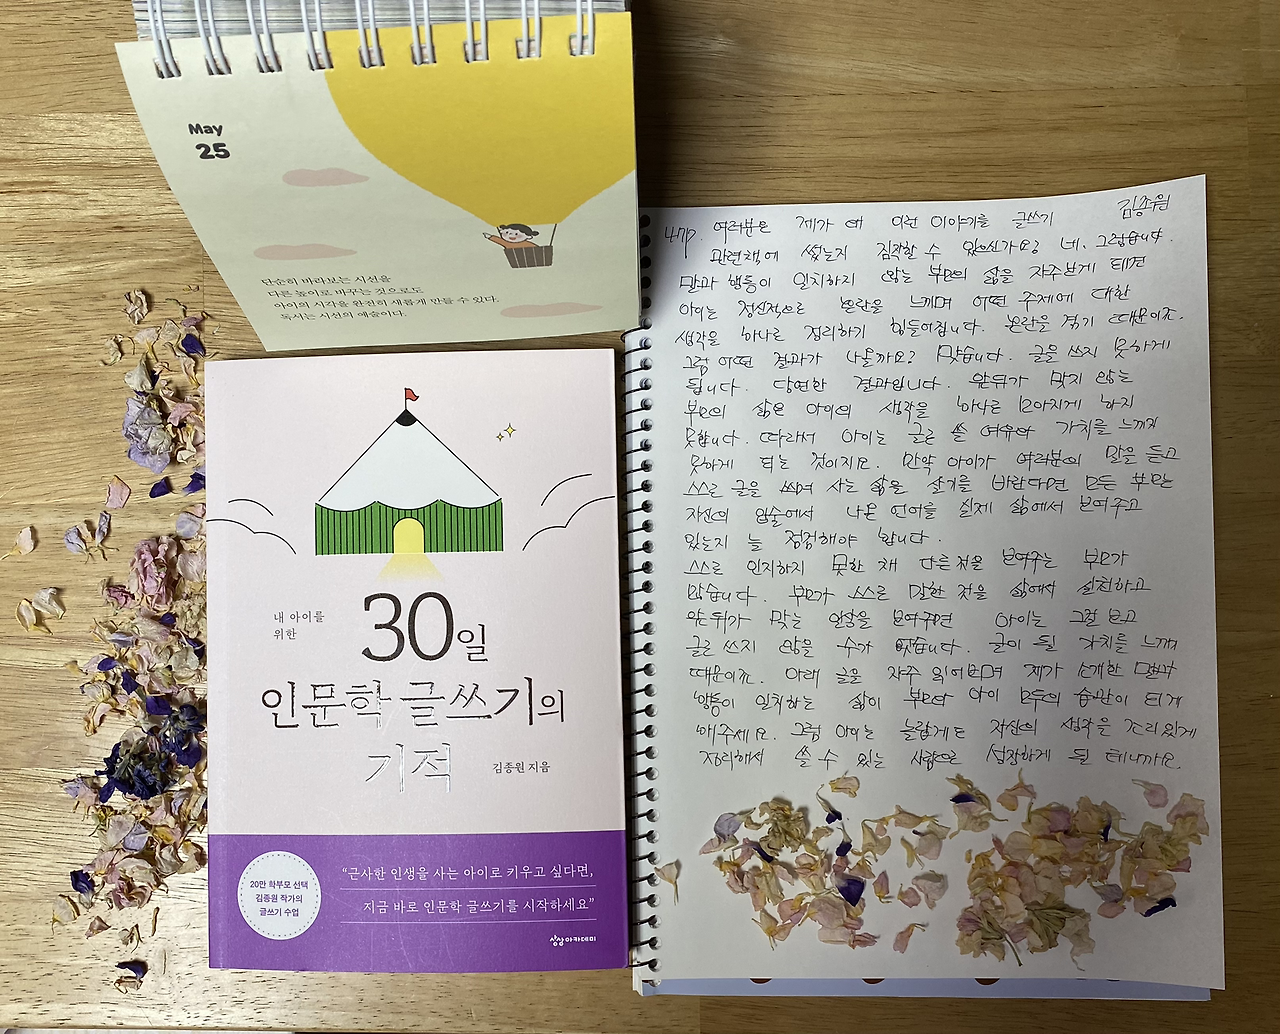 May
25
단순히 바라보는 시선을
다른 높이로 바꾸는 것으로도
아이의 시각을 완전히 새롭게 만들 수 있다.
독서는 시선의 예술이다.
내 아이를
위한
30일
인문학 글쓰기의
기적
김종원 지음
20만 학부모 선택
김종원 작가의
글쓰기 수업
“근사한 인생을 사는 아이로 키우고 싶다면,
지금 바로 인문학 글쓰기를 시작하세요”
상상아카데미
김종원
47p. 여러분은 제가 왜 이런 이야기를 글쓰기
관련책에 썼는지 짐작할 수 있으신가요? 네. 그렇습니다.
말과 행동이 일치하지 않는 부모의 삶을 자주보게 되면
아이는 정신적으로 혼란을 느끼며 어떤 주제에 대한
생각을 하나로 정리하기 힘들어집니다. 혼란을 겪기 때문이죠.
그럼 어떤 결과가 나올까요? 맞습니다. 글을 쓰지 못하게
됩니다. 당연한 결과입니다. 앞뒤가 맞지 않는
부모의 삶은 아이의 생각을 하나로 모아지게 하지
못합니다. 따라서 아이는 글로 쓸 여유와 가치를 느끼지
못하게 되는 것이지요. 만약 아이가 여러분의 말을 듣고
스스로 글을 쓰며 사는 삶을 살기를 바란다면 모든 부모는
자신의 입술에서 나온 언어를 실제 삶에서 보여주고
있는지 늘 점검해야 합니다.
스스로 인지하지 못한 채 다른 것을 보여주는 부모가
많습니다. 부모가 스스로 말한 것을 삶에서 실천하고
앞뒤가 맞는 언행을 보여주면 아이는 그걸 보고
글로 쓰지 않을 수가 없습니다. 글이 될 가치를 느끼기
때문이죠. 아래 글을 자주 읽어보며 제가 소개한 말과
행동이 일치하는 삶이 부모와 아이 모두의 습관이 되게
해주세요. 그럼 아이는 놀랍게도 자신의 생각을 조리있게
정리해서 쓸 수 있는 사람으로 성장하게 될 테니까요.